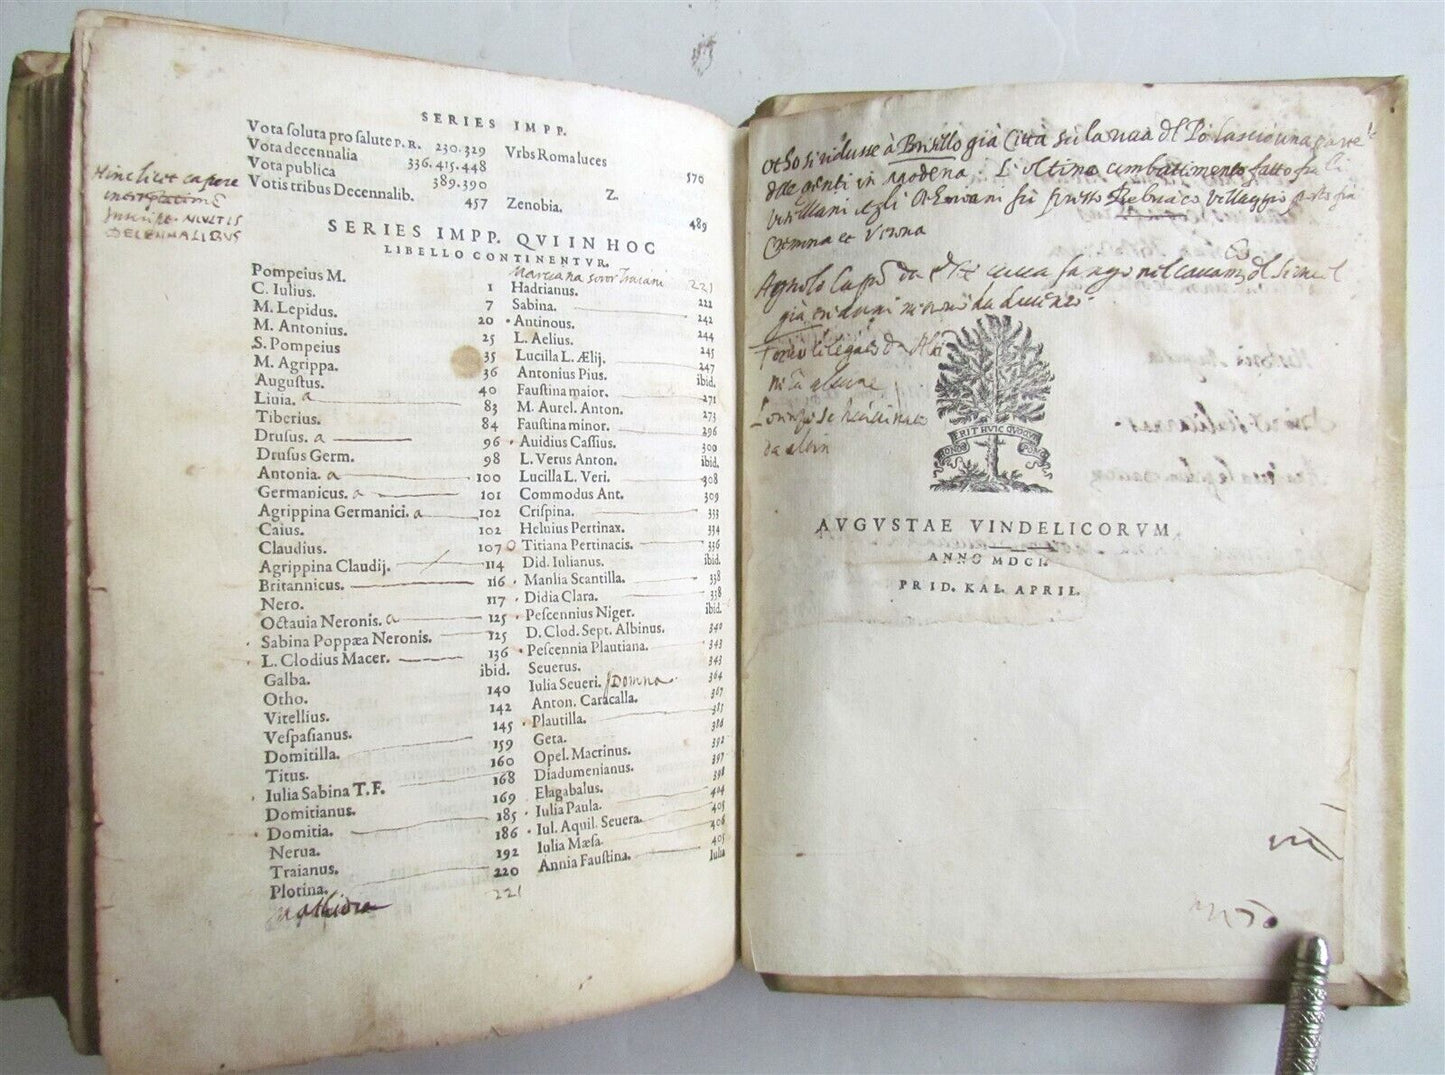 SERIES IMPP.
Vota soluta pro salute P. R. 230.329
Vota decennalia 336.415.448
Vota publica 389.390
Votis tribus Decennalib. 457
Vrbs Roma luces 570
Z.
Zenobia. 489
Hinc licet capere
inscripte MVLTIS
DECENNALIBVS
SERIES IMPP. QVI IN HOC
LIBELLO CONTINENTVR.
Pompeius M. 1
C. Iulius. 7
M. Lepidus. 20
M. Antonius. 25
S. Pompeius 35
M. Agrippa. 36
Augustus. 40
Liuia. a 83
Tiberius. 84
Drusus. a 96
Drusus Germ. 98
Antonia. a 100
Germanicus. a 101
Agrippina Germanici. a 102
Caius. 102
Claudius. 107
Agrippina Claudij. 114
Britannicus. 116
Nero. 117
Octauia Neronis. a 125
Sabina Poppæa Neronis. 125
L. Clodius Macer. 136
Galba. ibid.
Otho. 140
Vitellius. 142
Vespasianus. 145
Domitilla. 159
Titus. 160
Iulia Sabina T. F. 168
Domitianus. 169
Domitia. 185
Nerua. 186
Traianus. 192
Plotina. 220
Mathidia 221
Marciana soror Traiani 221
Hadrianus. 222
Sabina. 242
Antinous. 244
L. Aelius. 245
Lucilla L. Ælij. 247
Antonius Pius. ibid.
Faustina maior. 271
M. Aurel. Anton. 273
Faustina minor. 296
Auidius Cassius. 300
L. Verus Anton. ibid.
Lucilla L. Veri. 308
Commodus Ant. 309
Crispina. 333
Heluius Pertinax. 334
Titiana Pertinacis. 336
Did. Iulianus. ibid.
Manlia Scantilla. 338
Didia Clara. 338
Pescennius Niger. ibid.
D. Clod. Sept. Albinus. 340
Pescennia Plautiana. 343
Seuerus. 343
Iulia Seueri. Domna. 364
Anton. Caracalla. 367
Plautilla. 385
Geta. 386
Opel. Macrinus. 392
Diadumenianus. 397
Elagabalus. 398
Iulia Paula. 404
Iul. Aquil. Seuera. 405
Iulia Mæsa. 406
Annia Faustina. 405
Iulia
Otho si ridusse à Brisillo già Città su la riua del Po lasciò una parte
delle genti in Modena. L'ultimo combattimento fatto fra li
Vitelliani e gli Othoniani fu presso Bebriaco Villaggio posto fra
Cremona et Verona
ERIT HVIC QVOQVE
HONOS
POMO
AVGVSTAE VINDELICORVM
ANNO MDCI.
PRID. KAL. APRIL.